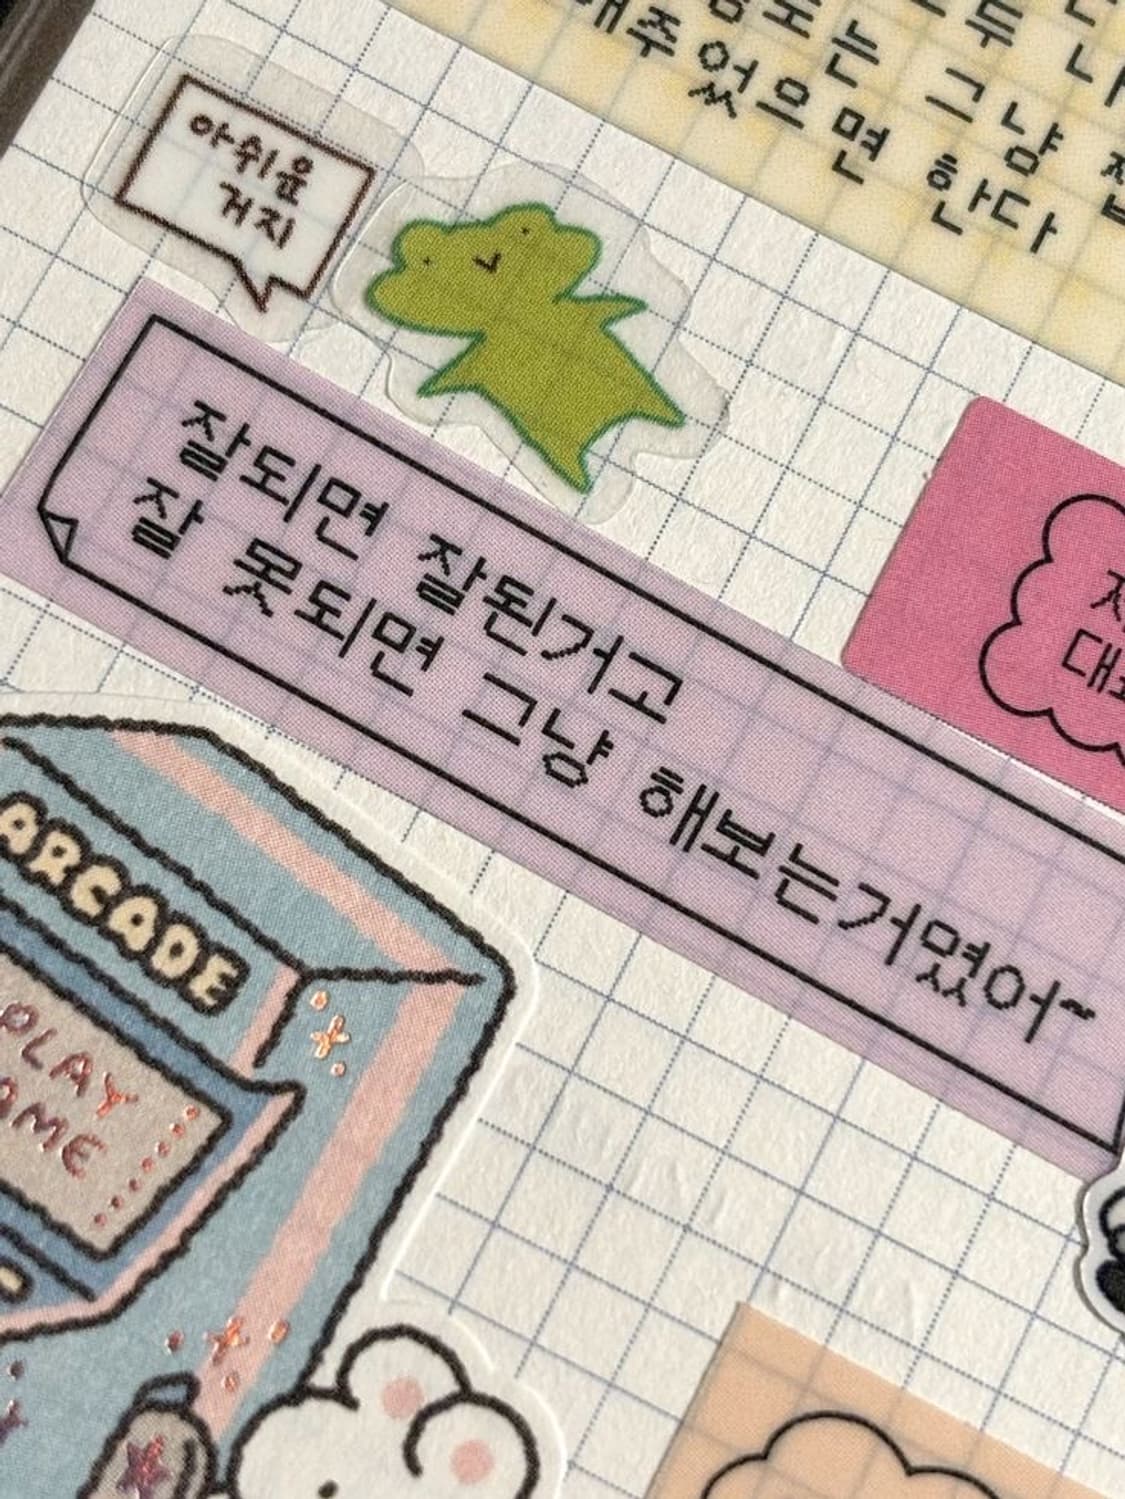 그냥
해주었으면 한다
아쉬울
거지
잘되면 잘된거고
잘 못되면 그냥 해보는거였어~
ARCADE
PLAY